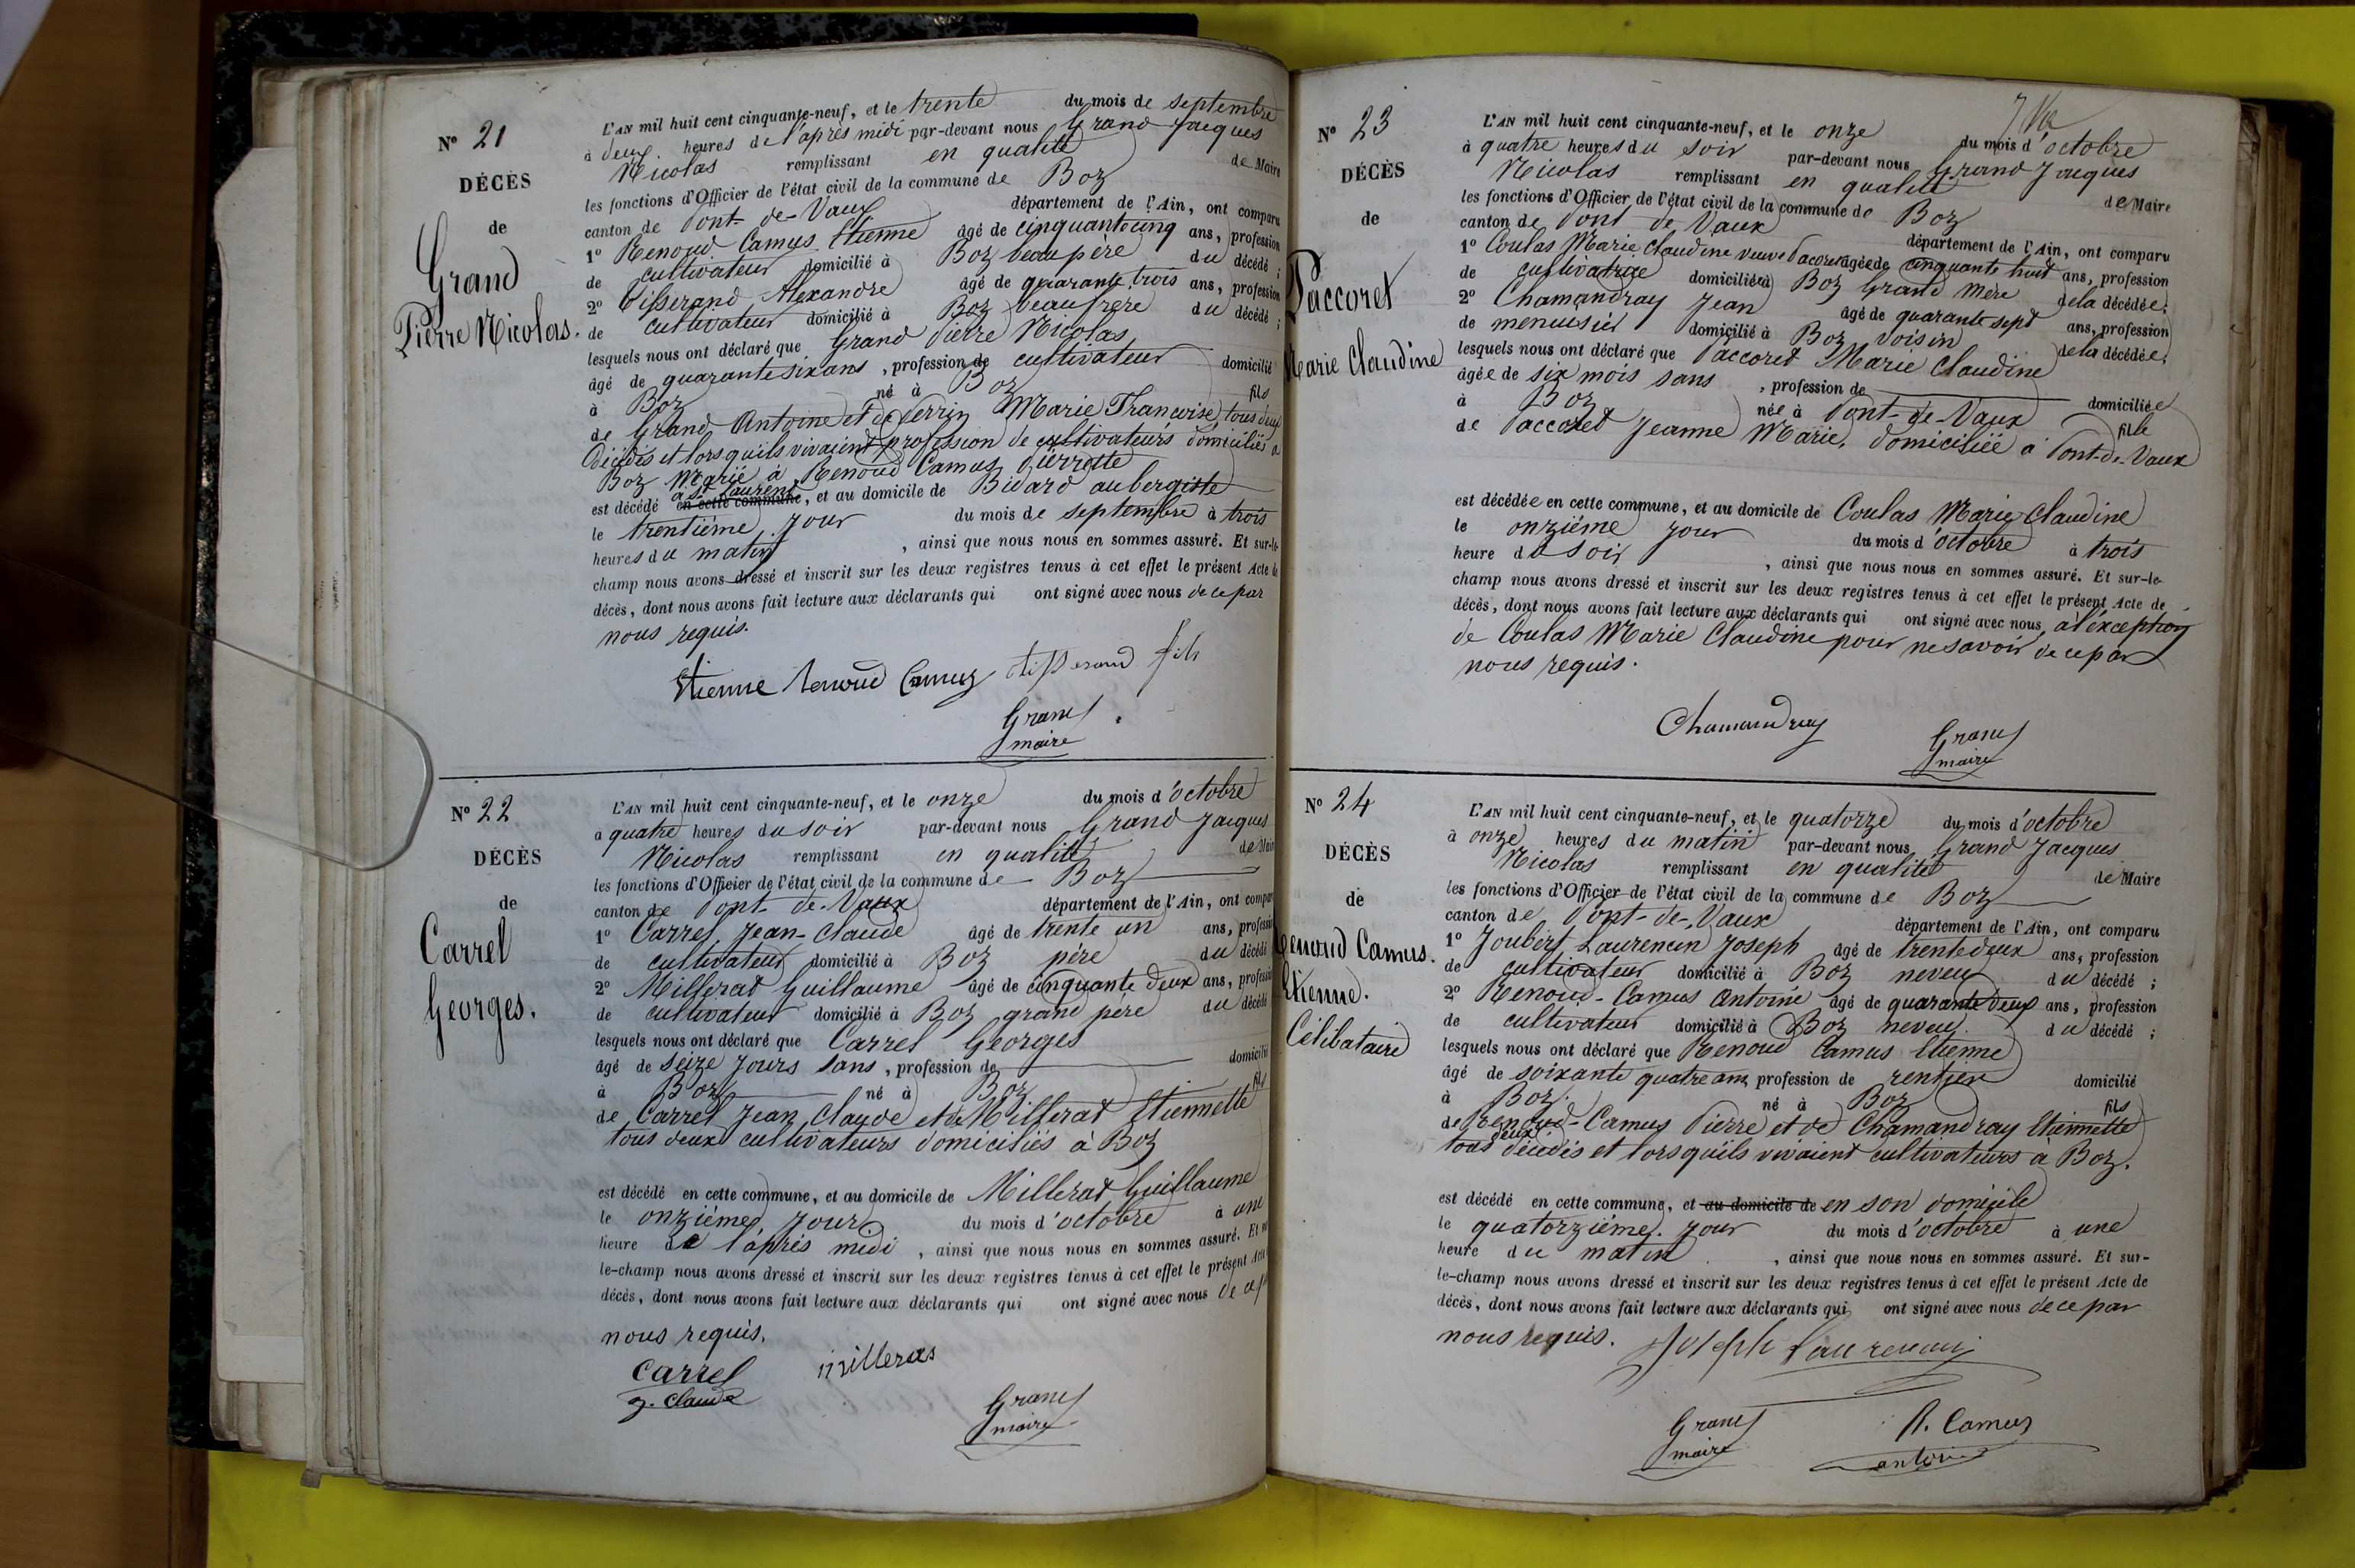 N° 21
DÉCÈS
de
Grand
Pierre Nicolas.
L'AN mil huit cent cinquante-neuf, et le trente du mois de septembre
à deux heures de l'après midi par-devant nous Grand Jacques
Nicolas remplissant en qualité de Maire
les fonctions d'Officier de l'état civil de la commune de Boz
canton de Pont-de-Vaux département de l'Ain, ont comparu
1° Renoud Camus Etienne âgé de cinquante cinq ans, profession
de cultivateur domicilié à Boz beau père du décédé ;
2° Tisserand Alexandre âgé de quarante trois ans, profession
de cultivateur domicilié à Boz beau frère du décédé ;
lesquels nous ont déclaré que Grand Pierre Nicolas
âgé de quarante six ans, profession de cultivateur domicilié
à Boz né à Boz fils
de Grand Antoine et de Perrin Marie Francoise, tous deux
décédés et lors quils vivaient profession de cultivateurs domiciliés à
Boz Marié à Renoud Camus Pierrette
est décédé à St Laurent en cette commune, et au domicile de Bidard aubergiste
le trentième jour du mois de septembre à trois
heures du matin, ainsi que nous nous en sommes assuré. Et sur-le-
champ nous avons dressé et inscrit sur les deux registres tenus à cet effet le présent Acte de
décès, dont nous avons fait lecture aux déclarants qui ont signé avec nous de ce par
nous requis.
Etienne Renoud Camus tisserand fils
Grand
maire
N° 22
DÉCÈS
de
Carrel
Georges.
L'AN mil huit cent cinquante-neuf, et le onze du mois d'octobre
à quatre heures du soir par-devant nous Grand Jacques
Nicolas remplissant en qualité de Mair
les fonctions d'Officier de l'état civil de la commune de Boz
canton de Pont-de-Vaux département de l'Ain, ont compar
1° Carrel Jean-Claude âgé de trente un ans, professi
de cultivateur domicilié à Boz père du décédé
2° Millerat Guillaume âgé de cinquante deux ans, professi
de cultivateur domicilié à Boz grand père du décédé
lesquels nous ont déclaré que Carrel Georges
âgé de seize jours sans, profession de domicilié
à Boz né à Boz fils
de Carrel Jean Claude et de Millerat Etiennette
tous deux cultivateurs domiciliés à Boz
est décédé en cette commune, et au domicile de Millerat Guillaume
le onzième jour du mois d'octobre à une
heure de l'après midi, ainsi que nous nous en sommes assuré. Et sur
le-champ nous avons dressé et inscrit sur les deux registres tenus à cet effet le présent Acte
décès, dont nous avons fait lecture aux déclarants qui ont signé avec nous de ce p
nous requis.
Carrel millerat
J. Claude
Grand
maire
N° 23
DÉCÈS
de
Paccoret
Marie Claudine
L'AN mil huit cent cinquante-neuf, et le onze du mois d'octobre
à quatre heures du soir par-devant nous Grand Jacques
Nicolas remplissant en qualité de Maire
les fonctions d'Officier de l'état civil de la commune de Boz
canton de Pont de Vaux département de l'Ain, ont comparu
1° Coulas Marie Claudine veuve Paccoret âgée de cinquante huit ans, profession
de cultivatrice domiciliée à Boz Grand Mère de la décédée ;
2° Chamandray Jean âgé de quarante sept ans, profession
de menuisier domicilié à Boz voisin de la décédée ;
lesquels nous ont déclaré que Paccoret Marie Claudine
âgée de six mois sans, profession de domiciliée
à Boz née à Pont-de-Vaux fille
de Paccoret Jeanne Marie, domiciliée à Pont-de-Vaux
est décédée en cette commune, et au domicile de Coulas Marie Claudine
le onzième jour du mois d'octobre à trois
heure du soir, ainsi que nous nous en sommes assuré. Et sur-le-
champ nous avons dressé et inscrit sur les deux registres tenus à cet effet le présent Acte de
décès, dont nous avons fait lecture aux déclarants qui ont signé avec nous, à l'exception
de Coulas Marie Claudine pour ne savoir de ce par
nous requis.
Chamandray
Grand
maire
N° 24
DÉCÈS
de
Renoud Camus.
Etienne.
Célibataire
L'AN mil huit cent cinquante-neuf, et le quatorze du mois d'octobre
à onze heures du matin par-devant nous Grand Jacques
Nicolas remplissant en qualité de Maire
les fonctions d'Officier de l'état civil de la commune de Boz
canton de Pont-de-Vaux département de l'Ain, ont comparu
1° Joubert Laurencin Joseph âgé de trente deux ans, profession
de cultivateur domicilié à Boz neveu du décédé ;
2° Renoud-Camus Antoine âgé de quarante deux ans, profession
de cultivateur domicilié à Boz neveu. du décédé ;
lesquels nous ont déclaré que Renoud Camus Etienne
âgé de soixante quatre ans, profession de rentier domicilié
à Boz. né à Boz fils
de Renoud-Camus Pierre et de Chamandray Etiennette
tous deux décédés et lorsquils vivaient cultivateurs à Boz.
est décédé en cette commune, et au domicile de en son domicile
le quatorzième jour du mois d'octobre à une
heure du matin, ainsi que nous nous en sommes assuré. Et sur-
le-champ nous avons dressé et inscrit sur les deux registres tenus à cet effet le présent Acte de
décès, dont nous avons fait lecture aux déclarants qui ont signé avec nous de ce par
nous requis. Joseph Laurencin
Grand R. Camus
maire antoine